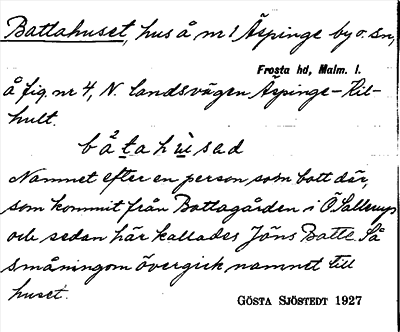 Battahuset, hus å nr 1 Äspinge by o. sn,
Frosta hd, Malm. l.
å fig. nr 4, N. landsvägen Äspinge-Til-
hult.
båtahùsad
Namnet efter en person som bott där,
som kommit från Battagården i Ö Sallerup
och sedan här kallades Jöns Batte. Så
småningom övergick namnet till
huset.
GÖSTA SJÖSTEDT 1927